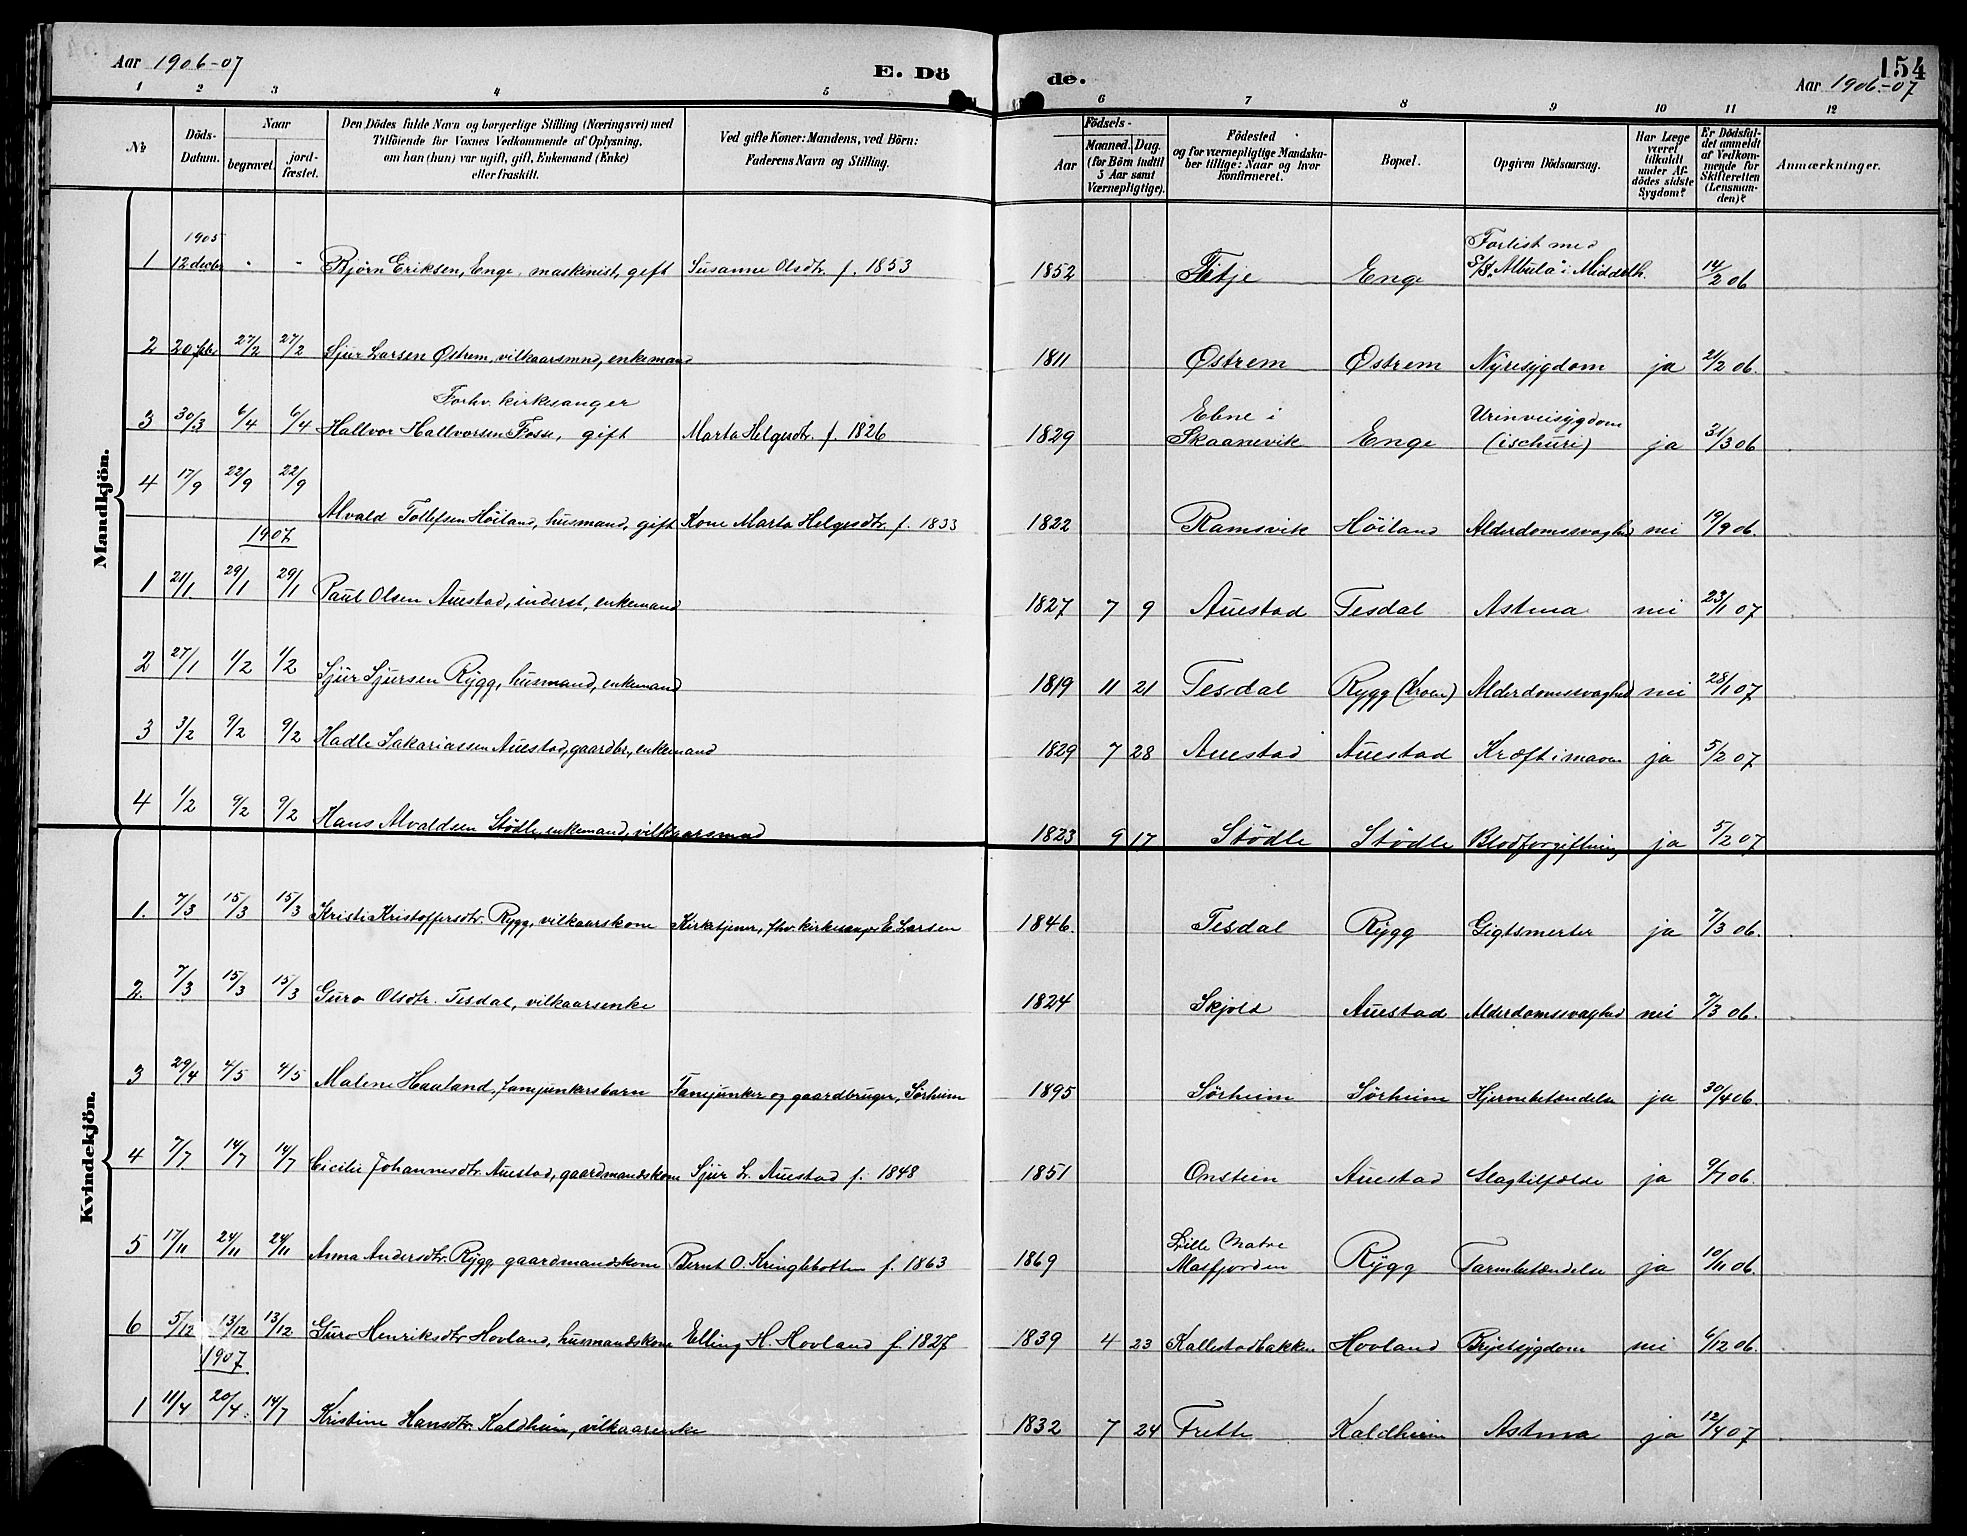 Aar 1906-07
E. Dö
de.
154
Aar 1906-07
1 2 3 4 5 6 7 8 9 10 11 12
№
Döds-Datum.
Naar
begravet.
jord-fæstet.
Den Dödes fulde Navn og borgerlige Stilling (Næringsvei) med
Tilföiende for Voxnes Vedkommende af Oplysning,
om han (hun) var ugift, gift, Enkemand (Enke)
eller fraskilt.
Ved gifte Koner: Mandens, ved Börn:
Faderens Navn og Stilling.
Födsels-
Aar
Maaned. Dag.
(for Börn indtil
5 Aar samt
Værnepligtige).
Födested
og for værnepligtige Mandska-
ber tillige: Naar og hvor
Konfirmeret.
Bopæl.
Opgiven Dödsaarsag.
Har Læge
været
tilkaldt
under Af-
dödes sidste
Sygdom?
Er Dödsfal-
det anmeldt
af Vedkom-
mende for
Skifteretten
(Lensman-
den)?
Anmærkninger.
Mandkjön.
1905 Forlist med
1 12 decbr " " Bjørn Eriksen, Enge, maskinist, gift Susanne Olsdtr. f. 1853 1852 Fitje Enge S/S. "Albula" i Middelh. 14/2 06
2 20 febr 27/2 27/2 Sjur Larsen Østrem, vilkaarsmnd, enkemand 1811 Østrem Østrem Nyresygdom ja 21/2 06.
Forhv. kirkesanger Ebne i Urinveisygdom
3 30/3 6/4 6/4 Hallvor Hallvorsen Fosse, gift Marta Helgesdtr f. 1826 1829 Skaanevik Enge (ischuri) ja 31/3 06
4 17/9 22/9 22/9 Alvald Tollefsen Höiland, husmand, gift Kone Marta Helgesdtr. f. 1833 1822 Ramsvik Höiland Alderdomssvaghed nei 19/9 06.
1907
1 21/1 29/1 29/1 Paul Olsen Auestad, inderst, enkemand 1827 7 9 Auestad Tesdal Astma nei 23/1 07
2 27/1 1/2 1/2 Sjur Sjursen Rygg, husmand, enkemand 1819 11 21 Tesdal Rygg (kroen) Alderdomssvaghed nei 28/1 07
3 3/2 9/2 9/2 Hadle Sakariassen Auestad, gaardbr., enkemand 1829 7 28 Auestad Auestad Kræft i maven ja 5/2 07
4 1/2 9/2 9/2 Hans Alvaldsen Stödle, enkemand, vilkaarsmnd 1823 9 17 Stödle Stödle Blodforgiftning ja 5/2 07
Kvindekjön.
1. 7/3 15/3 15/3 Kristi Kristoffersdtr. Rygg, vilkaarskone Kirketjener, fhv. kirkesanger E Larsen 1846. Tesdal Rygg Gigtsmerter ja 7/3 06.
2. 7/3 15/3 15/3 Guro Olsdtr. Tesdal, vilkaarsenke 1824 Skjold Auestad Alderdomssvaghed nei 7/3 06.
3 29/4 4/5 4/5 Malene Haaland, fanejunkersbarn Fanejunker og gaardbruger, Sørheim 1895 Sørheim Sørheim Hjernebetændelse ja 30/4 06.
4 7/7 14/7 14/7 Cicilie Johannesdtr. Auestad, gaardmandskone Sjur L. Auestad f. 1848 1851 Onstein Auestad Slagtilfælde ja 9/7 06.
Lille Matre
5 17/11 24/11 24/11 Anna Andersdtr. Rygg gaardmandskone Bernt O. Kringlebotten f. 1863 1869 Matfjorden Rygg Tarmbetændelse ja 10/11 06.
6 5/12 13/12 13/12 Guro Henriksdtr Hovland, husmandskone Elling H. Hovland f. 1827 1839 4 23 Kallestadbakken Hovland Brystsygdom nei 6/12 06.
1907
1 11/4 20/4. 14/7 Kristine Hansdtr. Kaldheim, vilkaarenke 1832 7 24 Frette Kaldheim Astma ja 12/4 07